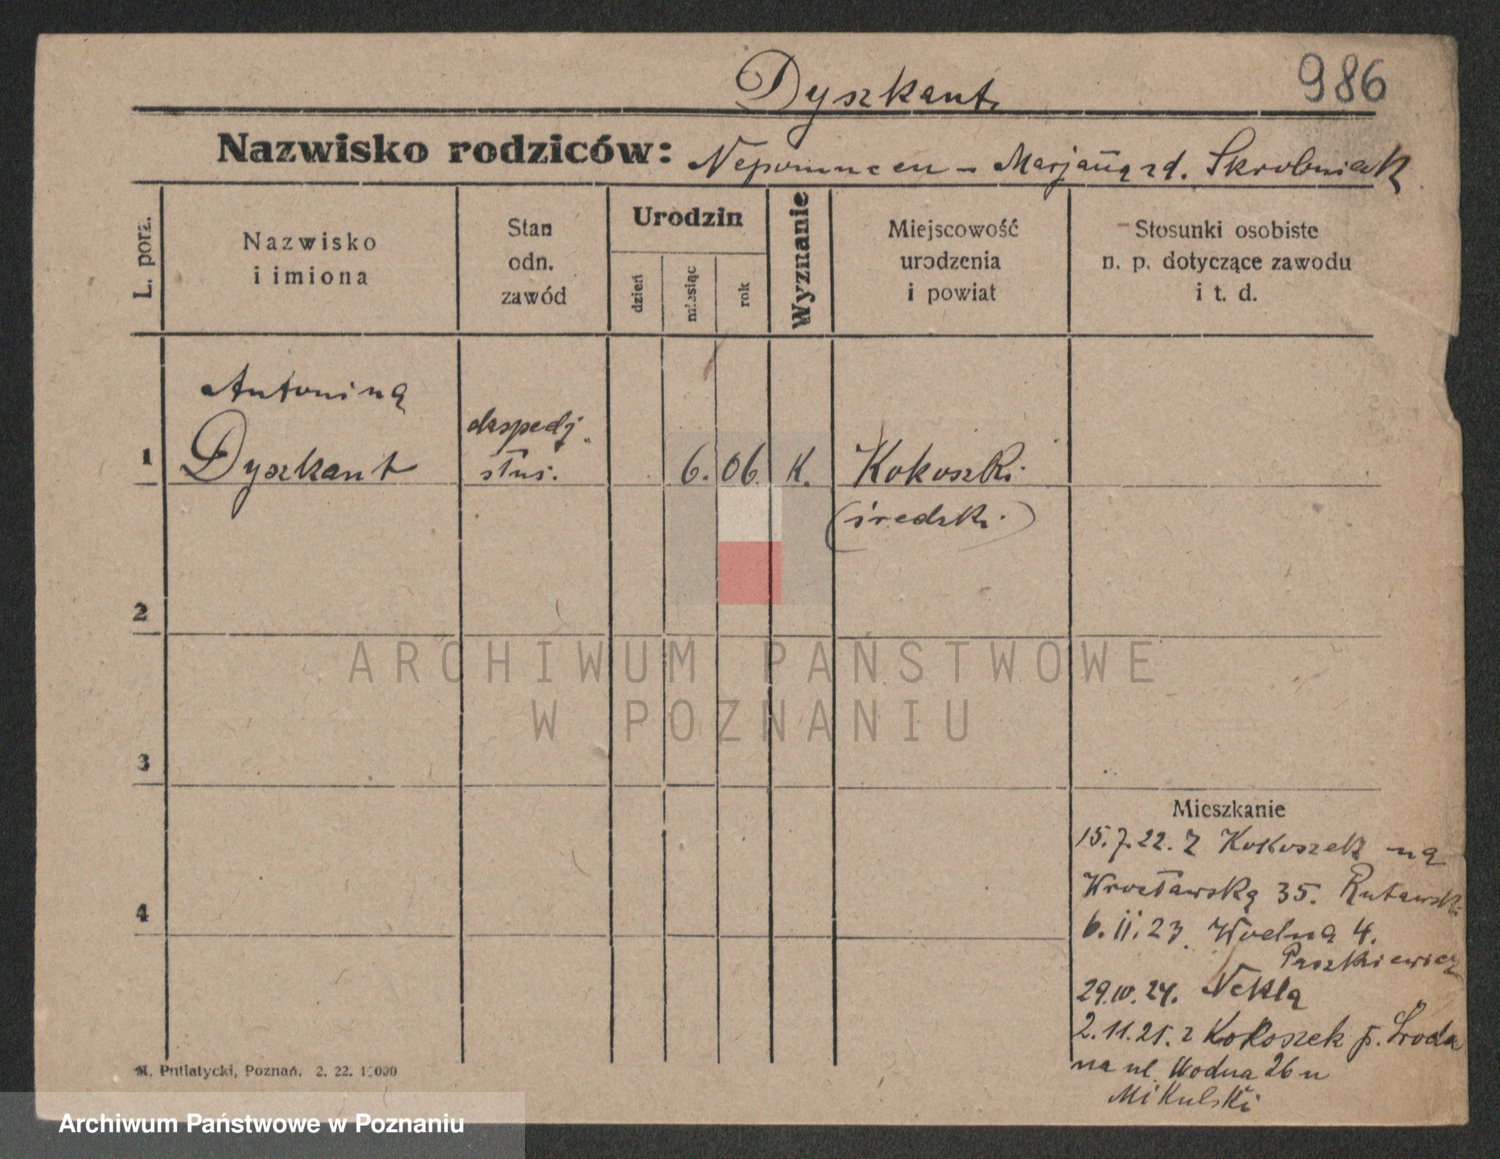 Dyszkant
986
Nazwisko rodziców: Nepomucen - Marjanna zd. Skrobniak
L. porz.
Nazwisko
i imiona
Stan
odn.
zawód
Urodzin
dzień
miesiąc
rok
Wyznanie
Miejscowość
urodzenia
i powiat
Stosunki osobiste
n. p. dotyczące zawodu
i t. d.
1
Antonina
Dyszkant
ekspedj.
6. 06. K.
Kokoszki
(średzki)
2
ARCHIWUM PAŃSTWOWE
W POZNANIU
3
4
Mieszkanie
15.7.22. Z Kokoszek na
Wrocławska 35.
6.II.23. Wodna 4.
Paszkiewicz
29.IV.24. Nekla
2.11.25. z Kokoszek p. Środa
na ul. Wodna 26 u
Mikulski
M. Putiatycki, Poznań. 2. 22. 1
Archiwum Państwowe w Poznaniu